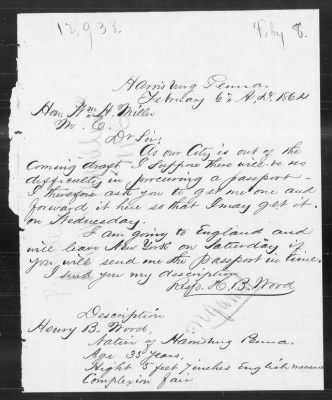 12.938.
Feby 8.
Harrisburg Penna.
February 6th A.D. 1864
Hon. Wm H. Miller
M. C.
Dr Sir;
As our City is out of the
coming draft, I suppose there will be no
difficulty in procuring a passport—
I therefore ask you to get me one and
forward it here so that I may get it
on Wednesday.
I am going to England and
will leave New York on Saturday if
you will send me the Passport in time.
I send you my description
Resp. H. B. Wood
Description
Henry B. Wood,
Native of Harrisburg Penna.
Age 35 years,
Hight 5 feet 7 inches English measure
Complexion fair